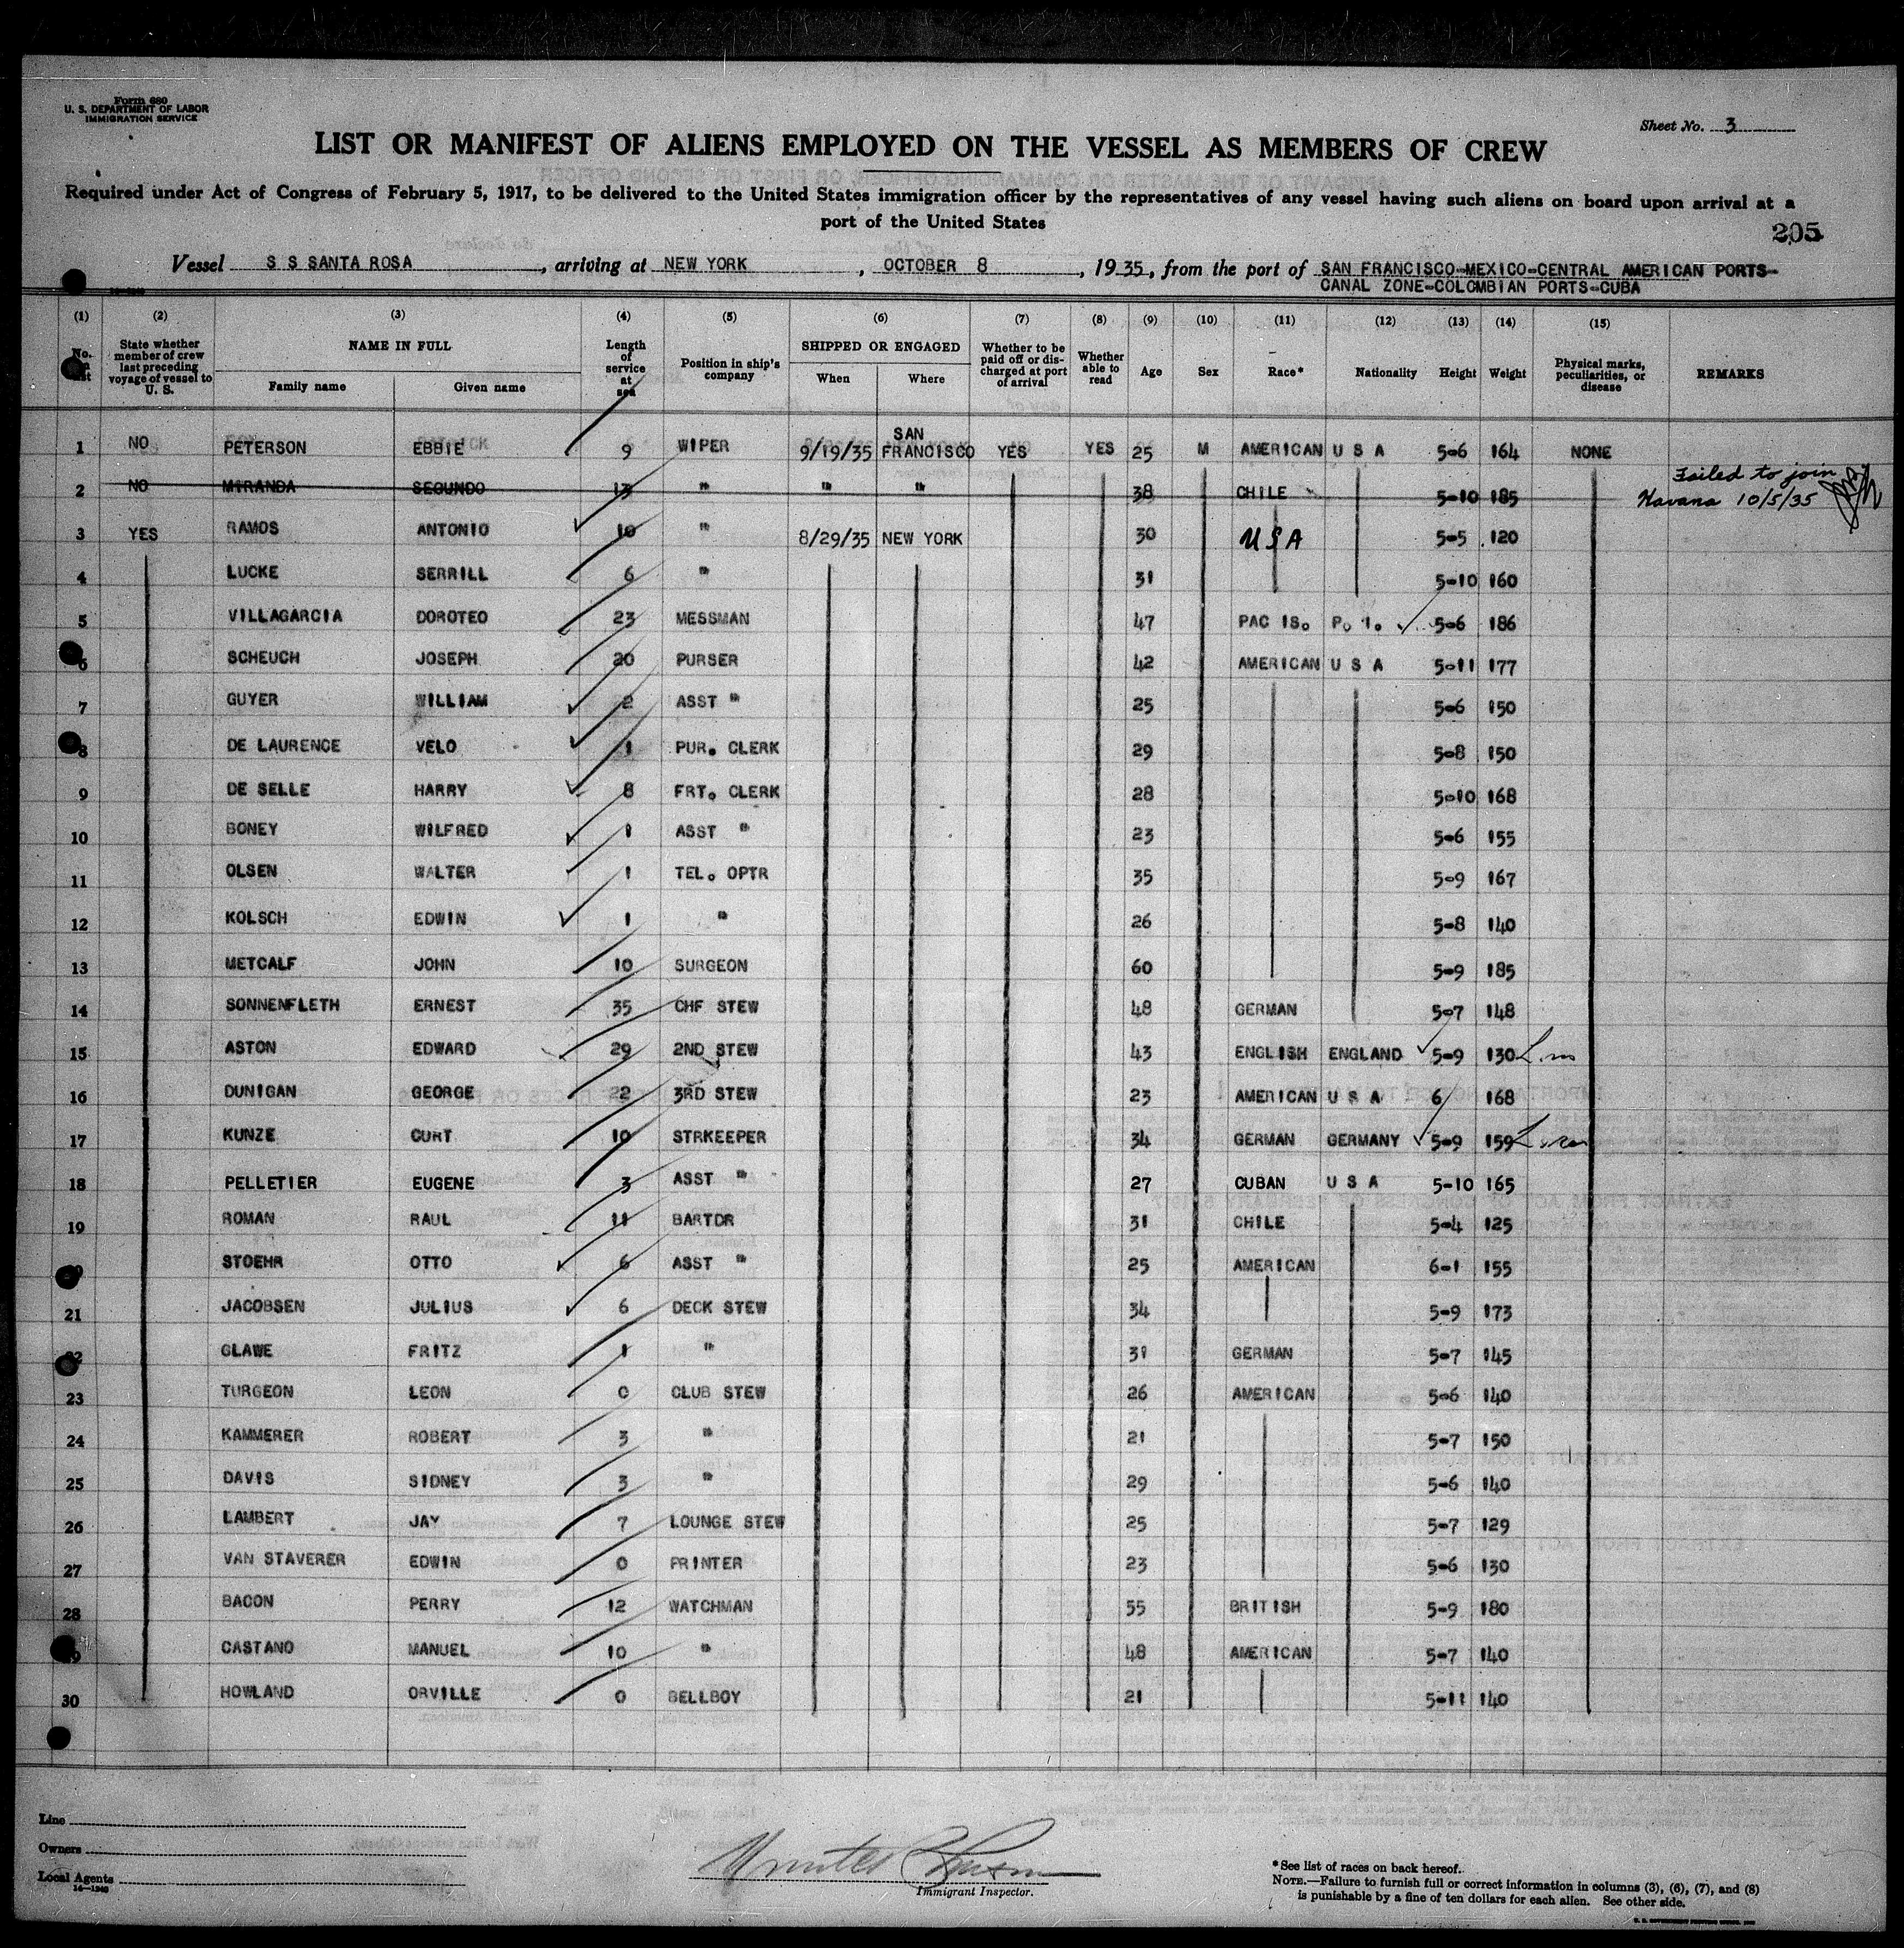 Form 680
U. S. DEPARTMENT OF LABOR
IMMIGRATION SERVICE
Sheet No. 3
LIST OR MANIFEST OF ALIENS EMPLOYED ON THE VESSEL AS MEMBERS OF CREW
Required under Act of Congress of February 5, 1917, to be delivered to the United States immigration officer by the representatives of any vessel having such aliens on board upon arrival at a
port of the United States
205
Vessel S S SANTA ROSA, arriving at NEW YORK, OCTOBER 8, 1935, from the port of SAN FRANCISCO-MEXICO-CENTRAL AMERICAN PORTS-
CANAL ZONE-COLOMBIAN PORTS-CUBA
(1) (2) (3) (4) (5) (6) (7) (8) (9) (10) (11) (12) (13) (14) (15)
No. State whether member of crew last preceding voyage of vessel to U. S. NAME IN FULL Family name Given name Length of service at sea Position in ship's company SHIPPED OR ENGAGED When Where Whether to be paid off or discharged at port of arrival Whether able to read Age Sex Race* Nationality Height Weight Physical marks, peculiarities, or disease REMARKS
1 NO PETERSON EBBIE 9 WIPER 9/19/35 SAN FRANCISCO YES YES 25 M AMERICAN U S A 5-6 164 NONE
2 NO MIRANDA SEGUNDO 13 " " " 38 CHILE 5-10 185 Failed to join Havana 10/5/35
3 YES RAMOS ANTONIO 10 " 8/29/35 NEW YORK 30 USA 5-5 120
4 LUCKE SERRILL 6 " 31 5-10 160
5 VILLAGARCIA DOROTEO 23 MESSMAN 47 PAC IS. P. I. 5-6 186
6 SCHEUCH JOSEPH 20 PURSER 42 AMERICAN U S A 5-11 177
7 GUYER WILLIAM 2 ASST " 25 5-6 150
8 DE LAURENCE VELO 1 PUR. CLERK 29 5-8 150
9 DE SELLE HARRY 8 FRT. CLERK 28 5-10 168
10 BONEY WILFRED 1 ASST " 23 5-6 155
11 OLSEN WALTER 1 TEL. OPTR 35 5-9 167
12 KOLSCH EDWIN 1 " 26 5-8 140
13 METCALF JOHN 10 SURGEON 60 5-9 185
14 SONNENFLETH ERNEST 35 CHF STEW 48 GERMAN 5-7 148
15 ASTON EDWARD 29 2ND STEW 43 ENGLISH ENGLAND 5-9 130
16 DUNIGAN GEORGE 22 3RD STEW 23 AMERICAN U S A 6 168
17 KUNZE CURT 10 STRKEEPER 34 GERMAN GERMANY 5-9 159
18 PELLETIER EUGENE 3 ASST " 27 CUBAN U S A 5-10 165
19 ROMAN RAUL 11 BARTDR 31 CHILE 5-4 125
20 STOEHR OTTO 6 ASST " 25 AMERICAN 6-1 155
21 JACOBSEN JULIUS 6 DECK STEW 34 5-9 173
22 GLAWE FRITZ 1 " 31 GERMAN 5-7 145
23 TURGEON LEON 0 CLUB STEW 26 AMERICAN 5-6 140
24 KAMMERER ROBERT 3 " 21 5-7 150
25 DAVIS SIDNEY 3 " 29 5-6 140
26 LAMBERT JAY 7 LOUNGE STEW 25 5-7 129
27 VAN STAVERER EDWIN 0 PRINTER 23 5-6 130
28 BACON PERRY 12 WATCHMAN 55 BRITISH 5-9 180
29 CASTANO MANUEL 10 " 48 AMERICAN 5-7 140
30 HOWLAND ORVILLE 0 BELLBOY 21 5-11 140
Line
Owners
Local Agents
14-1240
Immigrant Inspector.
*See list of races on back hereof.
NOTE.—Failure to furnish full or correct information in columns (3), (6), (7), and (8)
is punishable by a fine of ten dollars for each alien. See other side.